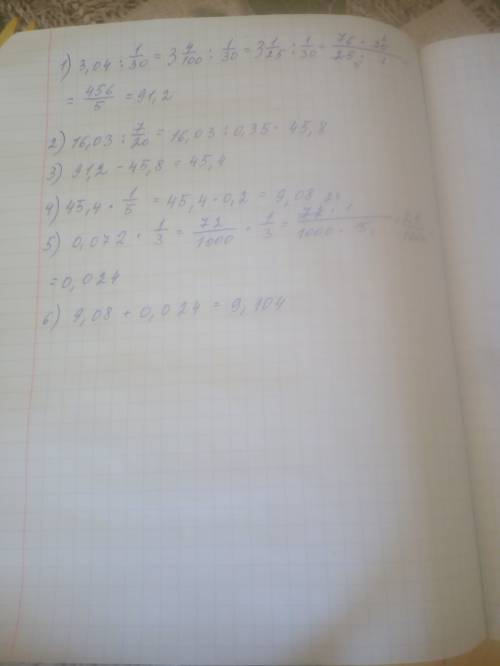 1) 3,04 : 1/30 = 3 4/100 : 1/30 = 3 1/25 : 1/30 = 76 · 30/25 ·
= 456/5 = 91,2
2) 16,03 : 7/20 = 16,03 : 0,35 = 45,8
3) 91,2 - 45,8 = 45,4
4) 45,4 · 1/5 = 45,4 · 0,2 = 9,08
5) 0,072 · 1/3 = 72/1000 · 1/3 = 72 · 1/1000 · 3 = 24/1000 =
= 0,024
6) 9,08 + 0,024 = 9,104